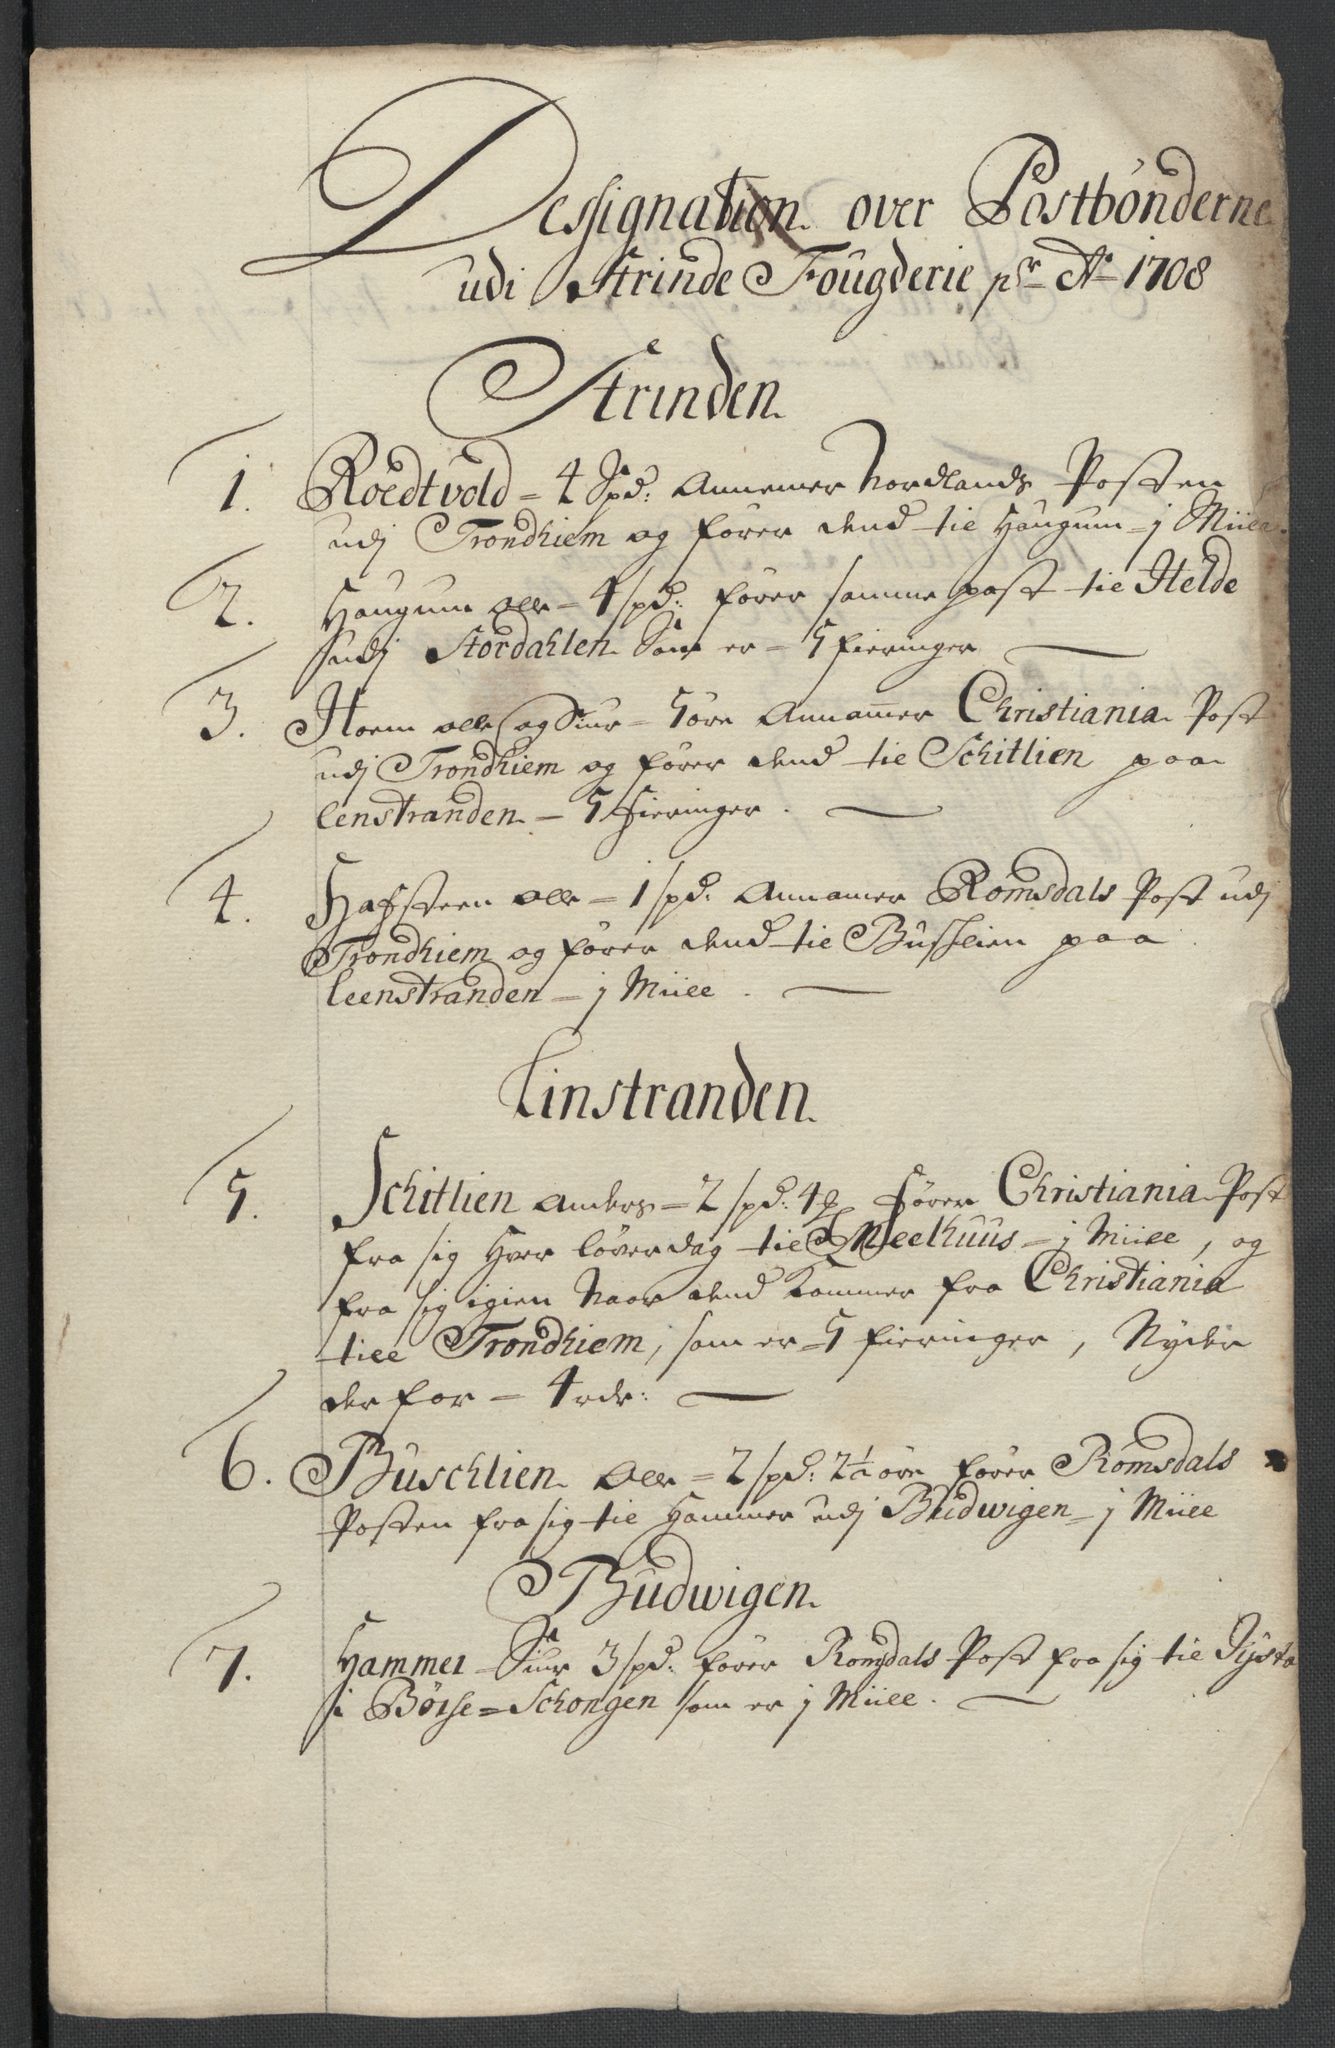 Dessignation over Postbönderne
udi Strinde Fougderie pr Ao 1708
Strinden
1. Roedtvold = 4 Spd: Annemer Nordlands Posten
udj Trondhiem og fører dend til Haugum = j Miil
2. Haugum Olle = 4 spd: fører samme post til Helde
udj Stordahlen Som er = 5 fieringer
3. Hoem Olle og Siur = 5 øre Annammer Christiania Post
udj Trondhiem og fører dend til Schitlien paa
Lenstranden = 5 fieringer.
4. Hafsteen Olle = 1 spd: Annamer Römsdals Post udj
Trondhiem og fører dend til Buschlien paa
Leenstranden = j Miil.
Linstranden
5. Schitlien Anders = 2 spd: 4 fører Christiania Post
fra sig Hver Løverdag till Meelhuus = j Miill, og
fra sig igien Naar dend kommer fra Christiania
till Trondhiem, som er = 5 fieringer, Nyder
der for = 4 rdr:
6. Buschlien Olle = 2 spd: 2½ øre fører Römsdals
Posten fra sig til Hammer udj Budwigen = j Miill
Budwigen
7. Hammer Siur 3 spd: fører Romsdals Post fra sig til
i Börse=Schongen som er j Miill.